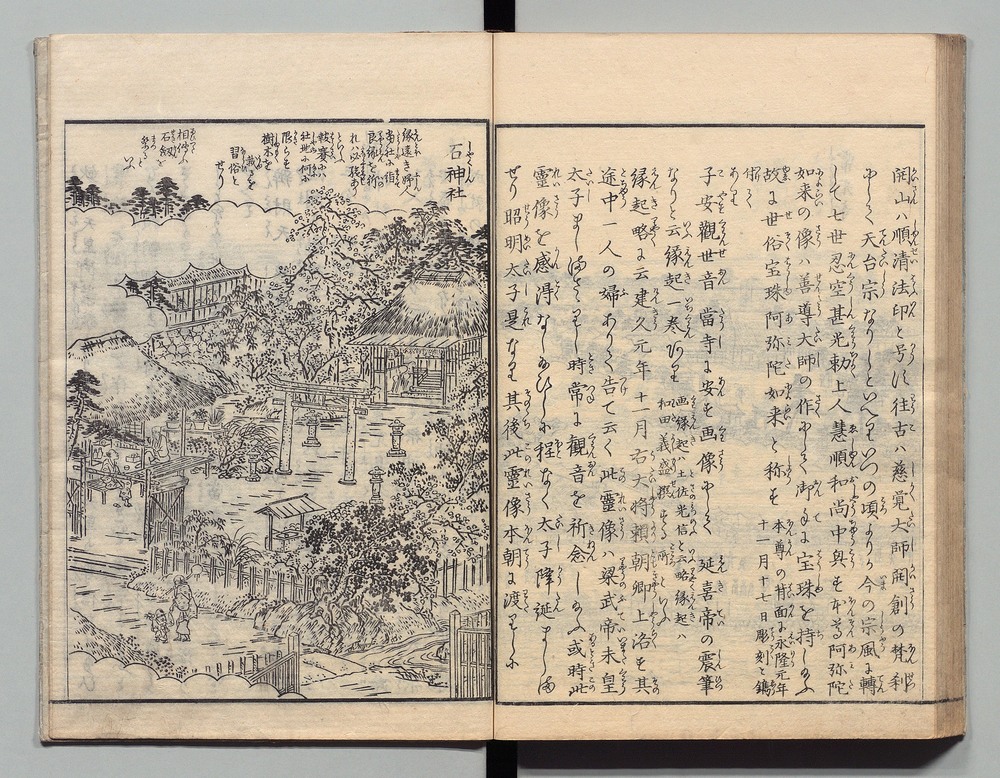 開山ハ順清法印と号に往古ハ慈覚大師開創の梵刹
にして天台宗なりしといへりいつの頃よりか今の宗風に轉
して七世忍空甚光勅上人慧順和尚中興を本尊阿弥陀
如来の像ハ善導大師の作にして御手に宝珠を持しめふ
故に世俗宝珠阿弥陀如来と称を
本尊の背面に永隆元年
十一月十七日彫刻と鐫
あり
子安觀世音 當寺に安を画像にして 延喜帝の震筆
なりと云縁起一巻あり
画縁起ハ土佐光信と云略縁起ハ
和田義盛撰する所といふ
縁起略に云建久元年十一月右大将頼朝卿上洛を其
途中一人の婦ありて告て云く此霊像ハ梁武帝未皇
太子ましまさゝりし時常に観音を祈念しめふ或時此
靈像を感得なしめひしに程なく太子降誕ましめ
せり昭明太子是なり其後此霊像本朝に渡りしに
石神社
縁遠き婦人
當社に詣
良縁を祈
れハ必験あり
とらふ
報賽にハ
社地に何に
限らも
樹木を
栽るを
習俗と
せり
相傳ふ
石剱を
祭ると
いふ